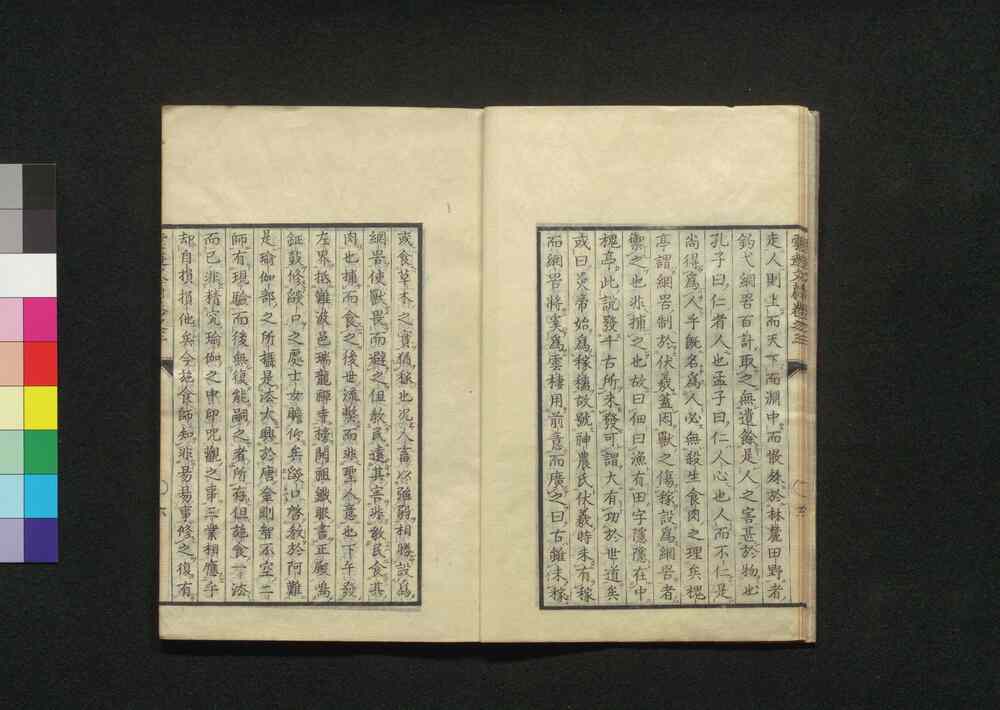 走人則上而天下而淵中而散絲於林麓田野者
釣弋網罟百計取之無遺餘是人之害甚於物也
孔子曰仁者人也孟子曰仁人心也人而不仁是
尚得爲人乎既名爲人必無殺生食肉之理矣槐
亭謂網罟制於伏羲蓋因獸之傷稼設爲網罟者
禦之也非捕之也故曰佃曰漁有田字隱隱在中
槐亭此説發千古所未發可謂大有功於世道矣
或曰炎帝始爲稼穡故號神農氏伏羲時未有稼
而網罟將奚爲雲棲用前意而廣之曰古雖未稼
或食草木之實猶稼也況人畜強弱相勝設爲
網罟使獸畏而避之但教民遠其害非教民食其
肉也捕而食之後世流弊而非聖人意也下午發
左界抵難波邑瑞龍禪寺檀開祖鐵眼書正殿爲
鉦鼓修燄口之處士女瞻仰矣燄口啓教於阿難
是瑜伽部之所攝是法大興於唐金剛智不空二
師有現驗而後無復能嗣之者所存但施食一法
而已非精究瑜伽之中印咒觀之事三業相應乎
却自損損他矣今施食師知非易易事修之復有